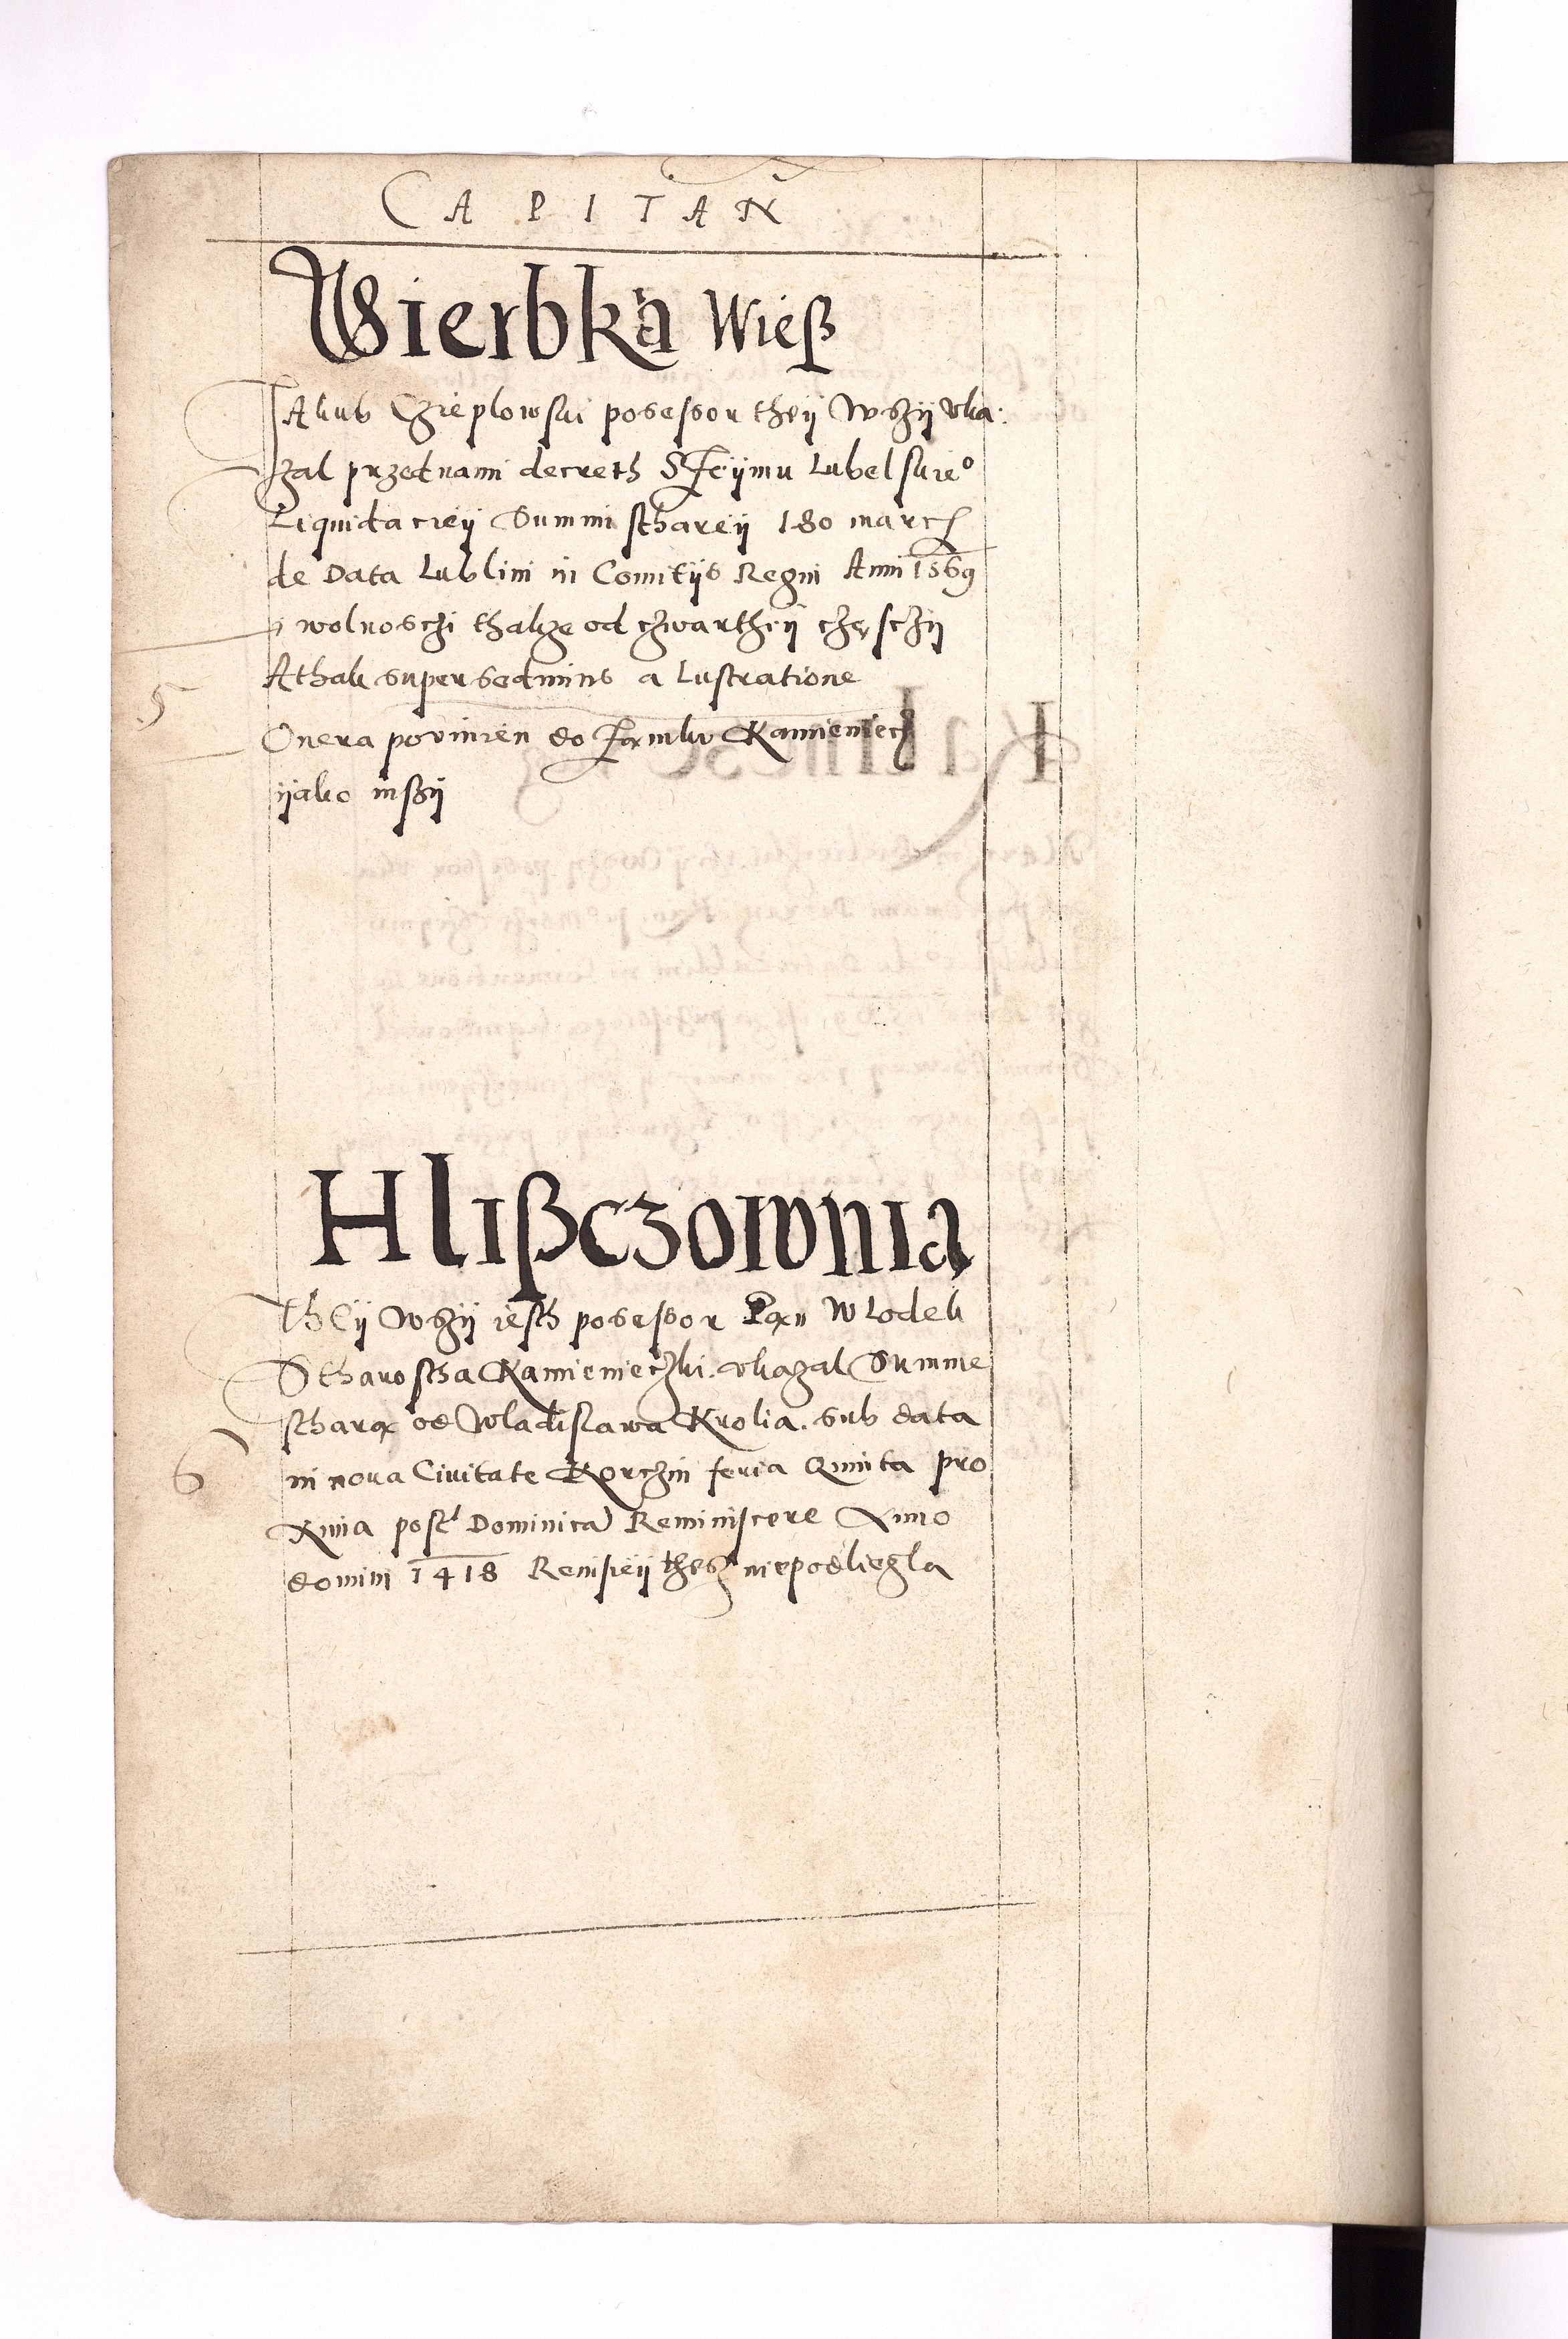 CAPITAN
Wierbka Wieß
Jakub Czieplowski possessor theÿ Wszÿ vka:
zal przednami decreth SJeÿmu Lubelskieº
Liquidacieÿ Summi stharéÿ 180 marcȝ
de Data Lublini in Comitÿs Regni Anni 1569
i wolnosczi thakze od czwartheÿ częsczÿ
5 Athak supersedimus a Lustratione
Onera powinien do Zamku Kamieniecz
ÿako inszÿ
Hlißczownia
theÿ Wszÿ iesth possessor Pan Wlodek
Stharostha Kamienieczki. vkazal Summe
stharą od Wladislawa Krolia. sub data
6 in nova Civitate Korczin feria Quinta pro
xima post Dominica Reminiscere Anno
domini 1418 Remisieÿ thesz niepodliegla